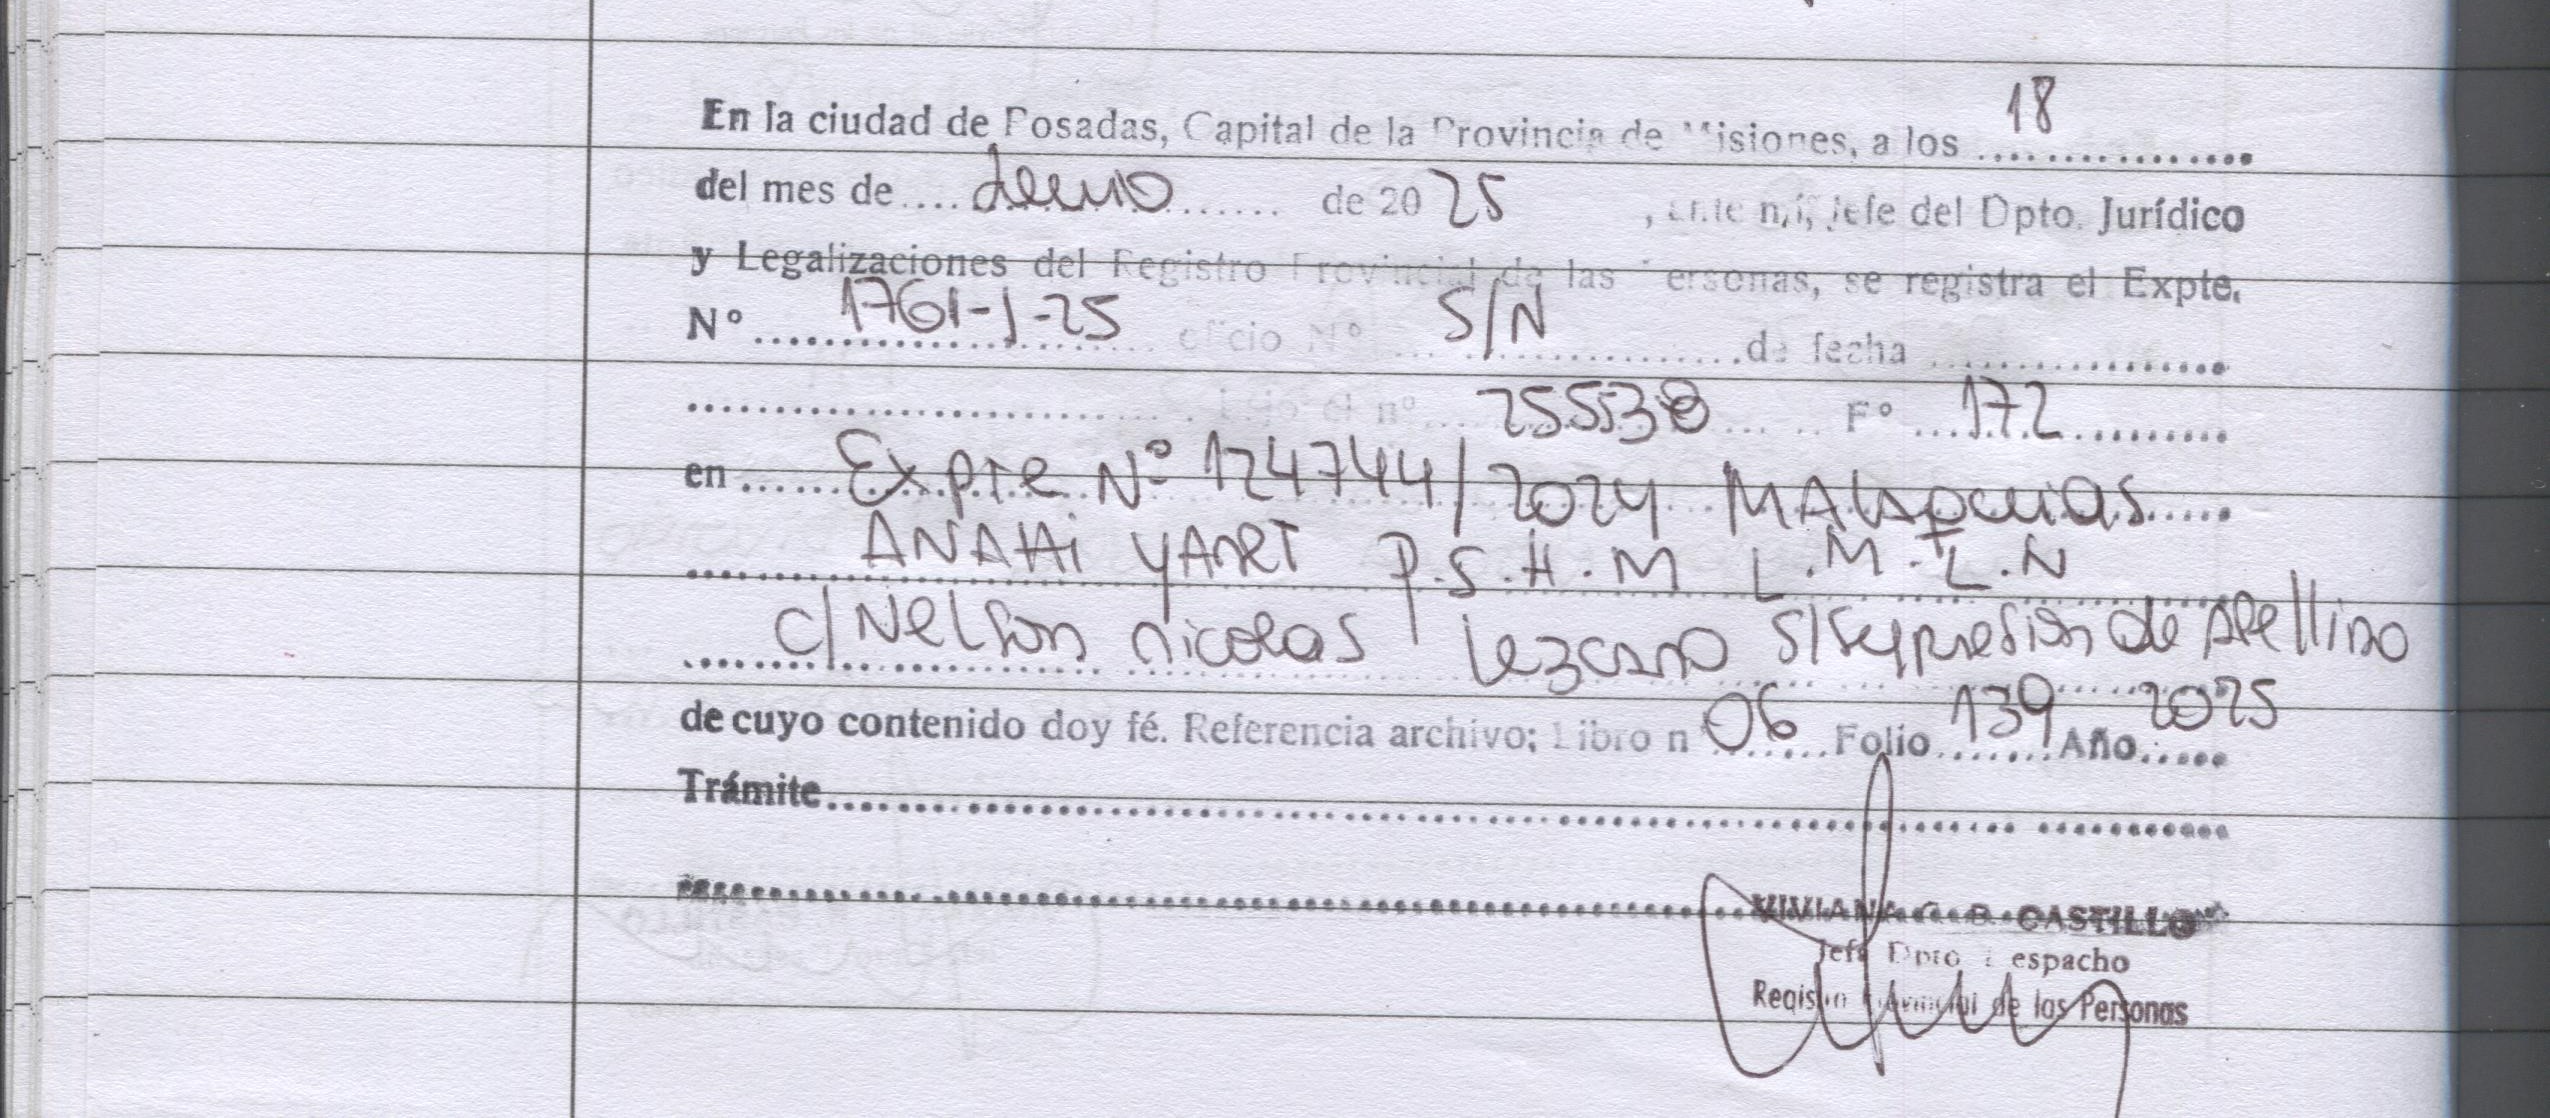 En la ciudad de Posadas, Capital de la Provincia de Misiones, a los 18
del mes de .... de 2025, ante mí, Jefe del Dpto. Jurídico
y Legalizaciones del Registro Provincial de las Personas, se registra el Expte.
Nº 1761-J-25 oficio Nº S/N de fecha
bajo el nº 255538 Fº 172
en Expte Nº 124744/2024
ANAHi YANRT P.S.H.M L.M.L.N
c/ Nelson nicolas Lezcano S/Supresión de Apellido
de cuyo contenido doy fé. Referencia archivo; Libro nº 06 Folio 139 Año 2025
Trámite
VIVIANA G. B. CASTILLO
Jefa Dpto Despacho
Registro Provincial de las Personas